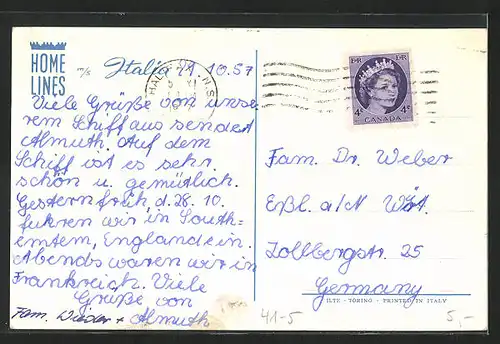 HOME
LINES
m/s Italia 10.57
HALIFAX N.S.
Viele Grüße von unse
rem Schiff aus sendet
Almuth. Auf dem
Schiff ist es sehr
schön u. gemütlich.
Gestern früh d. 28. 10.
fuhren wir in South=
emtem, England ein.
Abends waren wir in
Frankreich. Viele
Grüße von
Fam. Wieder + Almuth
E·R E·R
4¢ 4¢
CANADA
Fam. Dr. Weber
Eßl. a/N Wrt.
Zollbergstr. 25
Germany
ILTE - TORINO - PRINTED IN ITALY
41-5
5,-